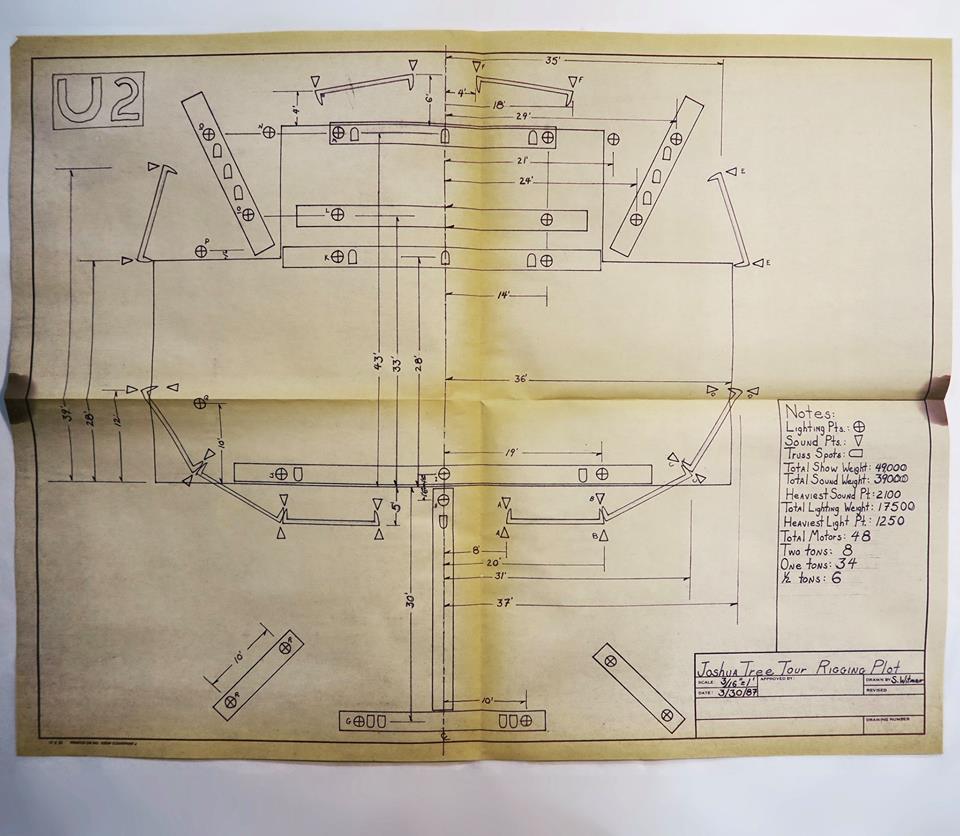 U2
35'
F
F
4'
6'
4'
18'
29'
Q
N
A
21'
E
24'
L
P
K
E
14'
43'
33'
28'
36'
39'
28'
12'
10'
19'
J
C
5'
A
B
A
B
8'
20'
31'
30'
37'
10'
R
10'
G
Notes:
Lighting Pts.:
Sound Pts.:
Truss Spots:
Total Show Weight: 49000
Total Sound Weight: 39000
Heaviest Sound Pt: 2100
Total Lighting Weight: 17500
Heaviest Light Pt: 1250
Total Motors: 48
Two tons: 8
One tons: 34
1/2 tons: 6
Joshua Tree Tour Rigging Plot
SCALE 3/16"=1'
APPROVED BY:
DRAWN BY S. Witmer
DATE: 3/30/87
REVISED
DRAWING NUMBER